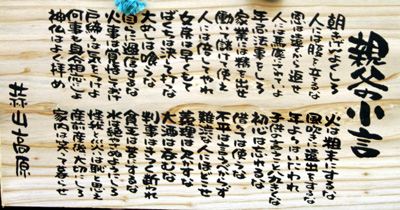 親父の小言
朝きげんよくしろ
人には腹を立てるな
恩は遠くから返せ
人には馬鹿にされていろ
年忌法事をしろ
家業には精を出せ
働いて儲けて使え
人には倍してやれ
女房は早くもて
ばくちは決してうつな
大めしは喰うな
自らに過信するな
火事は覚悟しておけ
戸締りに気をつけろ
何事も身分相応にしろ
神仏はよく拝め
火は粗末にするな
風吹きに遠出するな
年よりはいたわれ
子供の言うこと八九きくな
初心は忘れるな
借りては使うな
不平は言うべからず
難渋な人にほどこせ
義理は欠かすな
大酒は呑むな
判事はきつく断れ
貧乏は苦にするな
水は絶やさぬようにしろ
怪我と災いは恥と思え
産前産後大切にしろ
家内は笑って暮せ
蒜山高原